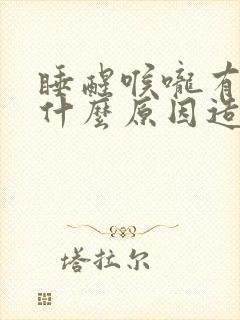 睡醒喉嚨有
什麼原因造
塔拉尔